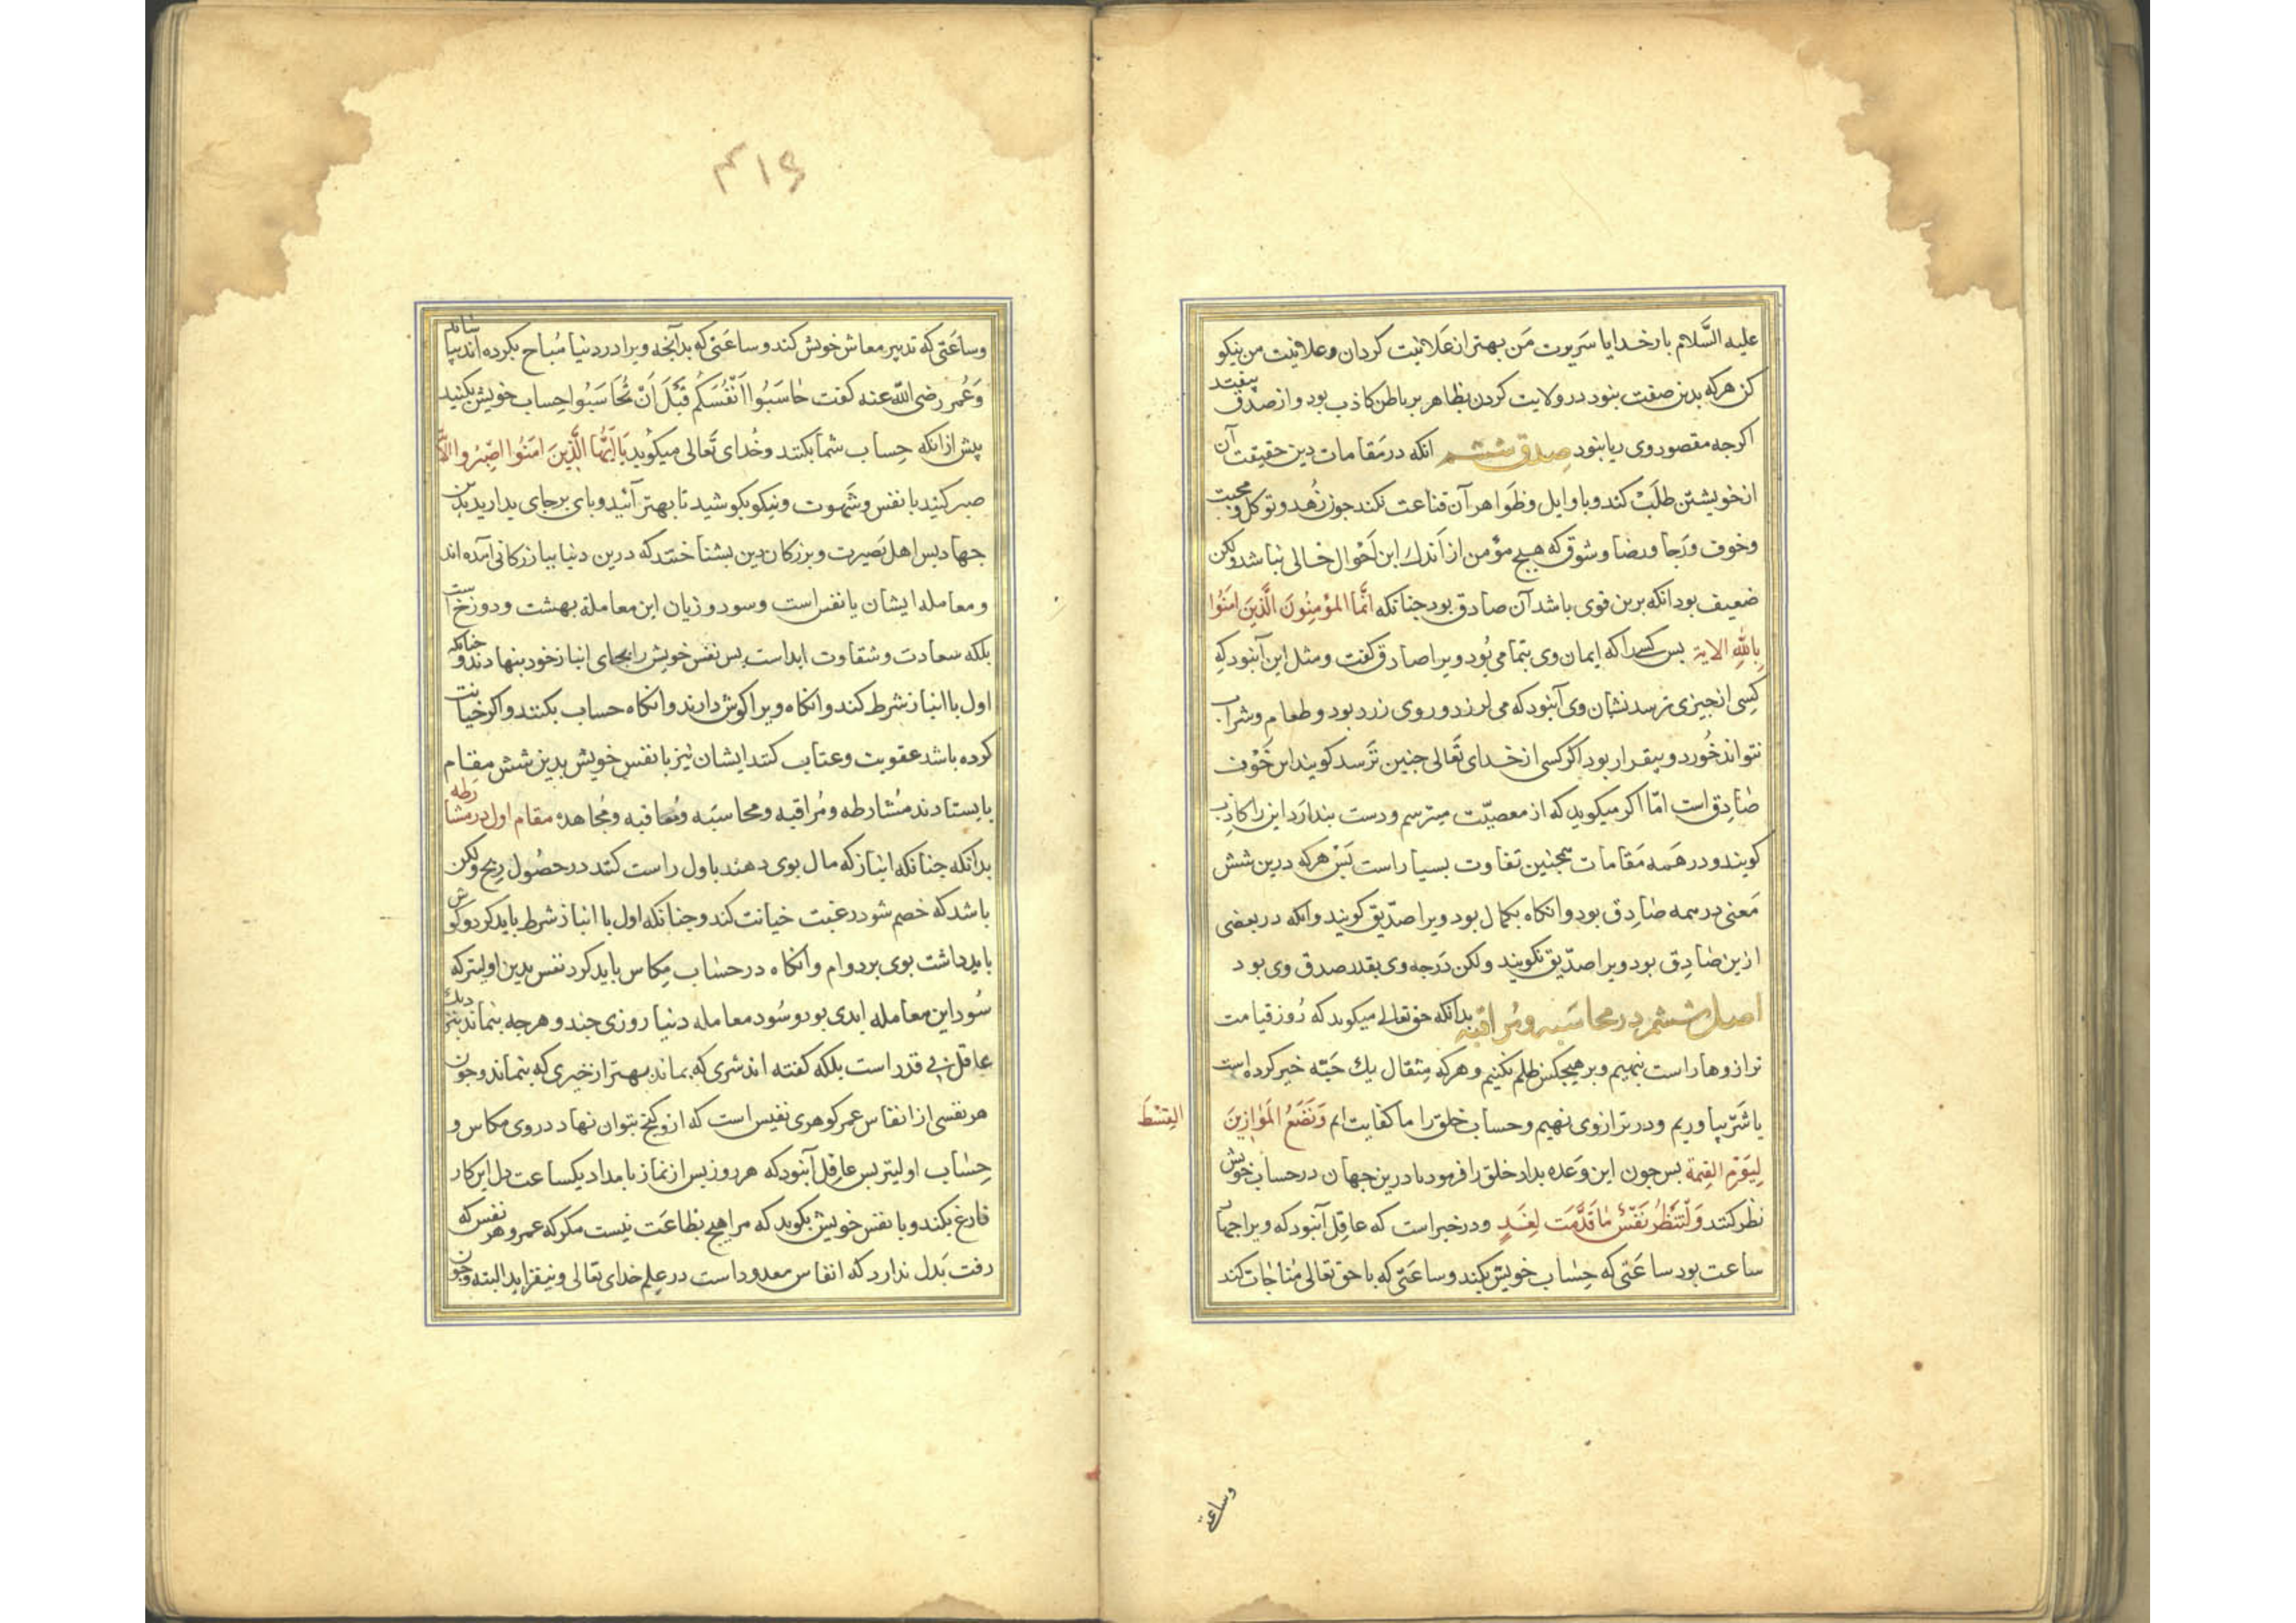 علیه السَّلام بارخدایا سَریرت مَن بهتر از عَلانیت کردان و علانیت من نیکو
کن هرکه بدین صفت بنود در ولایت کردن بظاهر بر باطن کاذب بود و از صدق بیفتد
اکرجه مقصود وی ریا بنود صدق ششم انکه در مَقامات دین حقیقت آن
از خویشتن طلَبْ کند و با وایل و ظَواهر آن قناعت نکند جون زُهد و توکل و محبت
و خوف و رَجا و رضا و شوق که هیچ مؤمن از اَندك این اَحْوال خالی نباشد ولکن
ضعیف بود انکه برین قوی باشد آن صادق بود جنانکه انَّما المؤمِنُونَ الَّذینَ امَنُوا
بِاللهِ الایة بس کسرا که ایمان وی بتمامی بُود ویرا صادق کفت و مثل این آنبود که
کَسِی از جیزی ترسد نشان وی آنبود که می لرزد و روی زرد بود و طعام و شراب
نتواند خُورد و بیقرار بود اکر کسی از خدای تَعالی جنین تَرسد کویند این خَوْف
صٰادِق است امّا اکر میکوید که از معصیّت میترسم و دست بندارَد این را کاذِب
کویند و در هَمه مَقامات همجنین تفاوت بسیار است بَسْ هرکه درین شش
مَعنی در همه صٰادِق بود و انکاه بکمال بود ویرا صدّیق کویند و انکه در بعضی
ازین صٰادِق بود ویرا صدّیق نکویند و لکن دَرجه وی بقدر صدق وی بود
اصل ششم در محاسَبه و مُراقبه بدانکه حق تعالی میکوید که رُوز قیامت
ترازوها راست بنهیم و بر هیجکس ظلم نکنیم و هرکه مِثقال یك حَبّه خیر کرده است
یا شَرّ بیاوریم و در ترازوی نهیم و حساب خلق را ما کفایت ایم وَنَضَعُ المَوازینَ
القِسْطَ
لِیَوْمِ القِیمة بس جون این وَعده بداد خلق را فرمود تا درین جهان در حساب خویش
نظر کنند وَلْتَنْظُرْ نَفْسٌ مٰاقَدَّمَت لِغَدٍ و در خبر است که عاقل آنبود که ویرا جهار
ساعت بود ساعَتی که حِسٰاب خویش بکند و ساعَتی که با حق تعالی مُناجات کند
وساعتی
۴۱۶
وساعَتی که تدبیر معاش خویش کند و ساعَتی که بدآنجه ویرا در دنیا مُباح بکرده اند بیاساید
وَعُمر رضی الله عنه کفت حٰاسَبُوا اَنْفُسَکُم قَبْلَ اَنْ تُحٰاسَبُوا حِساب خویش بکنید
پیش از انکه حِساب شما بکنند و خُدای تَعالی میکویُد یَا اَیُّهَا الَّذینَ امَنُوا اصْبِرُوا الآیة
صبر کنید با نفس و شَهوت و نیکو بکوشید تا بهتر آئید و بای برجای بدارید بدین
جهاد بس اهل بَصیرت و بزرکان دین بشناختند که درین دنیا ببازرکانی آمده اند
و معامله ایشان با نفس است و سود و زیان این معاملة بهشت و دوزخ است
بلکه سعادت و شقاوت ابد است بس نفس خویش را بجای انباز خود بنهادند و جنانکه
اول با انباز شرط کند و انکاه ویرا کوش دارند و انکاه حساب بکنند و اکر خیانت
کرده باشد عقوبت و عتاب کنند ایشان نیز با نفسِ خویش بدین شش مقام
بایستادند مُشارطه و مُراقبه و محاسبَه و مُعاقبه و مُجاهده مقام اول در مشارَطه
بدانکه جنانکه انباز که مال بوی دهند باول راست کنند در حصُول ربح ولکن
باشد که خصم شود رغبت خیانت کند و جنانکه اول با انباز شرط باید کرد و کوش
باید داشت بوی بر دوام و انکاه در حسٰاب مِکاس باید کرد نفس بدین اولیتر که
سُود این معامله ابدی بود و سُود معامله دنیا روزی جند و هرجه بنماند بنزدیك
عاقل بی قدر است بلکه کفته اند شری که بماند بهتر از خیری که بنماند و جون
هر نفسی از انفاس عمر کوهری نفیس است که ازو کنج بتوان نهاد در وی مکاس و
حِسٰاب اولیتر بس عاقِل آنبود که هر روز بس از نماز بامداد یکساعت دل این کار
فارغ بکند و با نفس خویش بکوید که مرا هیچ بظاعَت نیست مکر که عمر و هر نفس که
رفت بَدل ندارد که انفاس معدود است در عِلم خدای تعالی و نیفزاید البته و جون